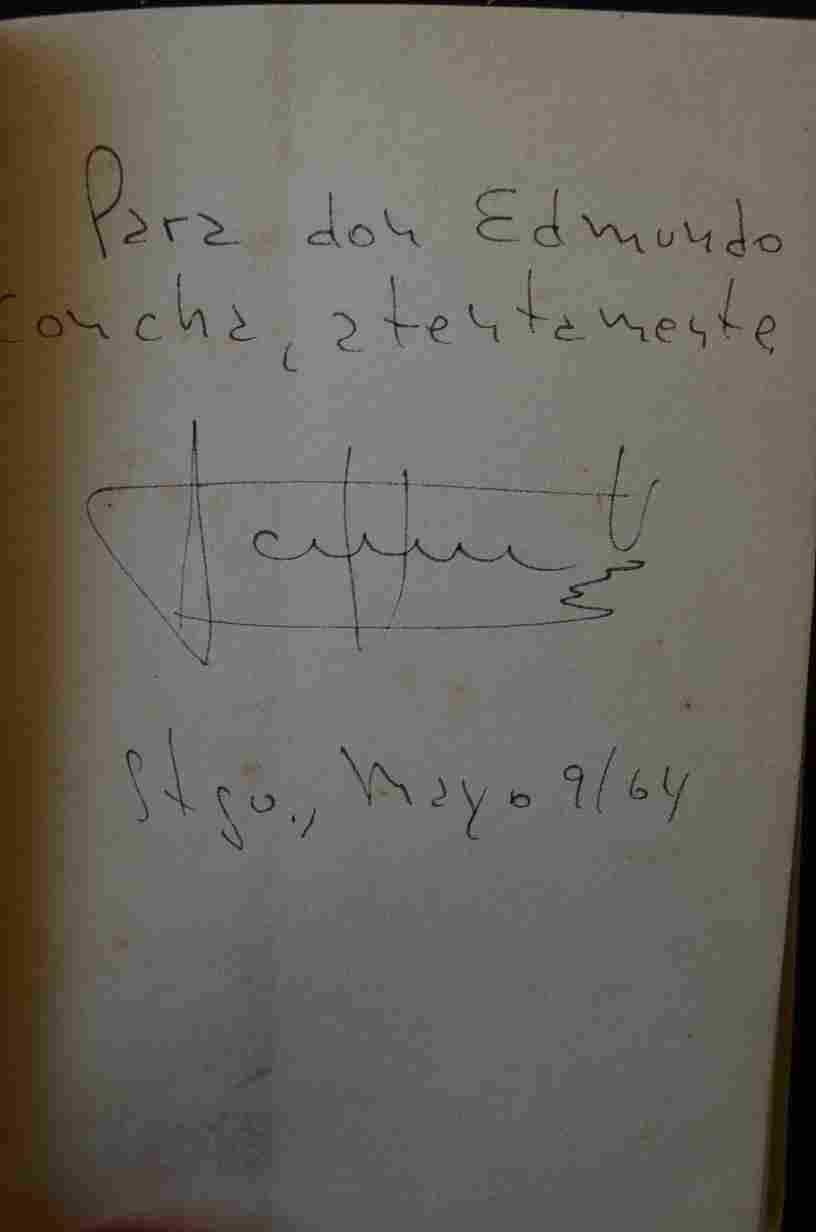 Para don Edmundo
Concha, atentamente
Stgo., Mayo 9/64